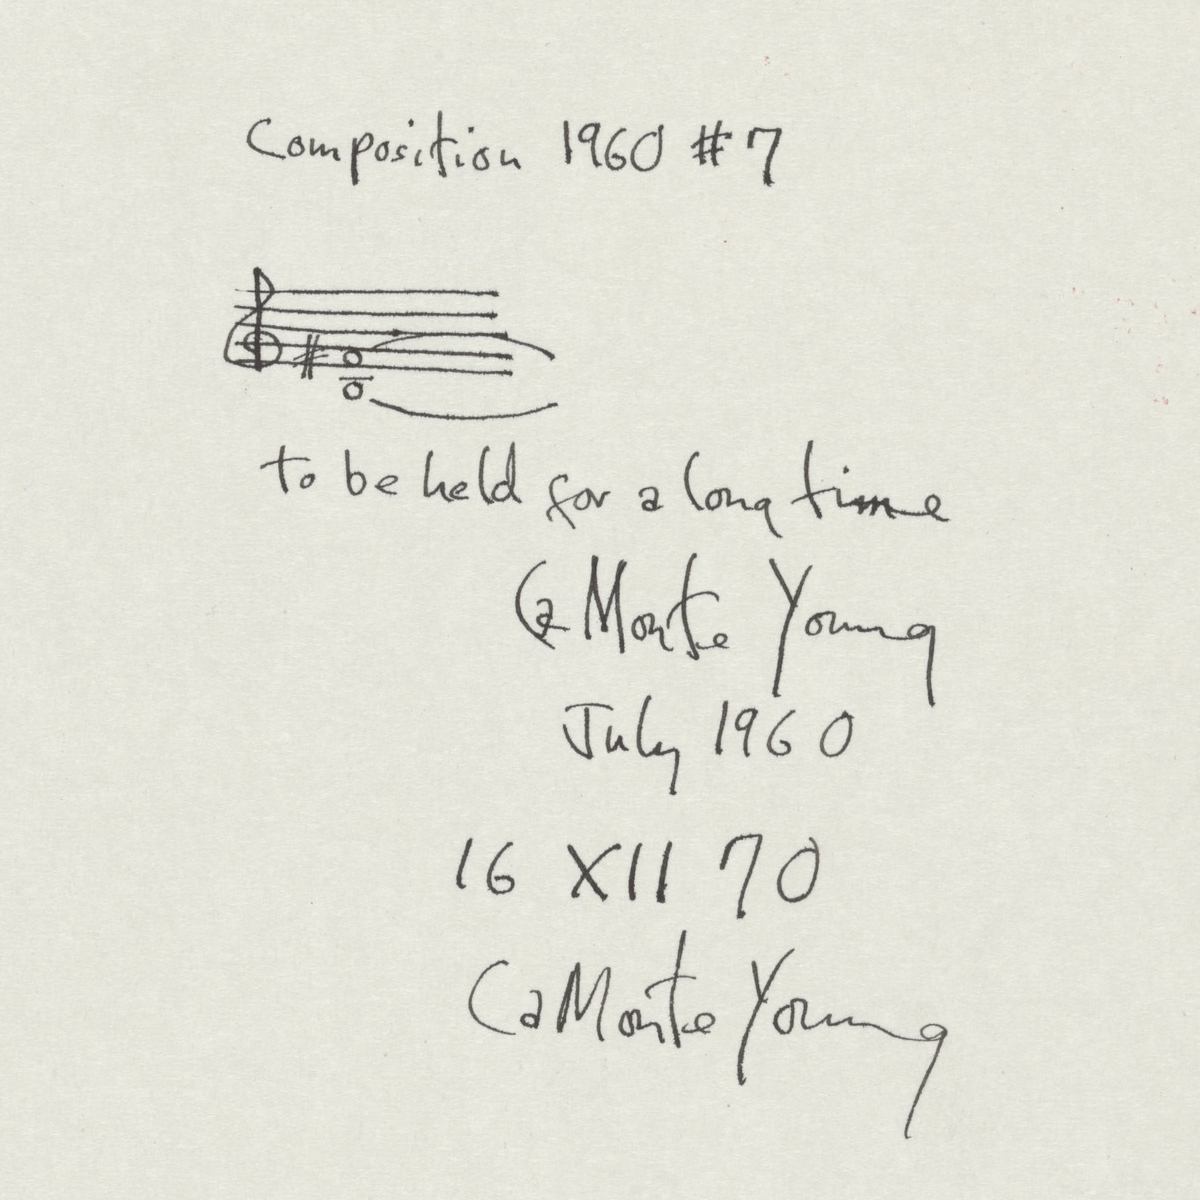 Composition 1960 #7
to be held for a long time
La Monte Young
July 1960
16 XII 70
La Monte Young